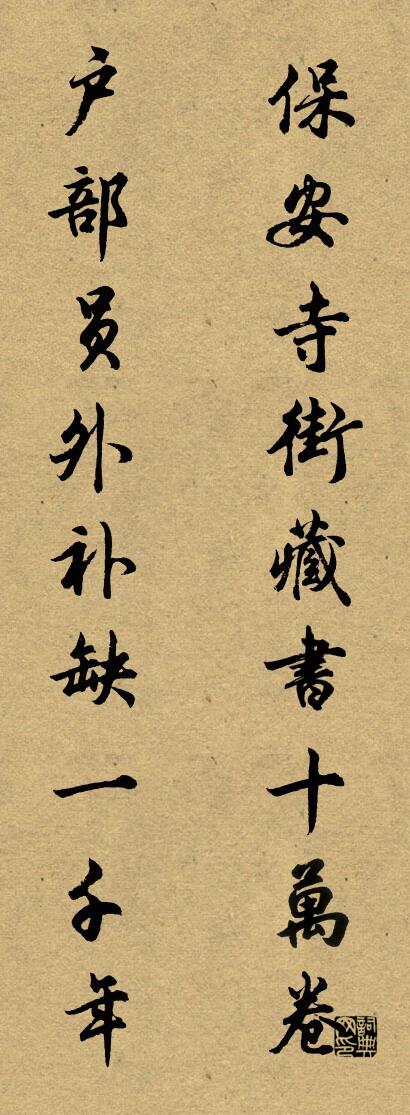 保安寺街藏書十萬卷
户部员外补缺一千年